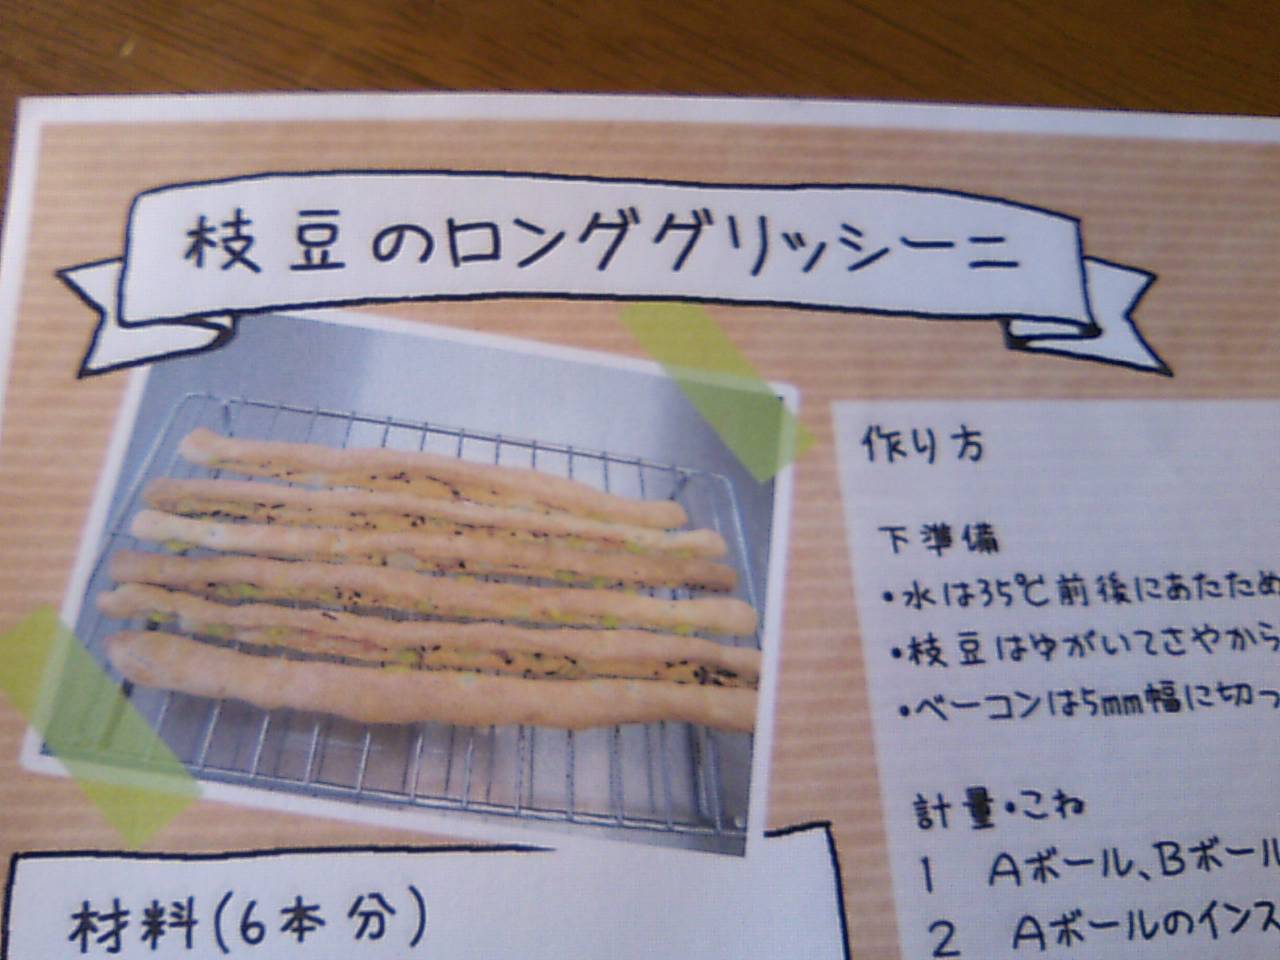 枝豆のロンググリッシーニ
作り方
下準備
・水は35℃前後にあたため
・枝豆はゆがいてさやから
・ベーコンは5mm幅に切っ
計量・こね
1 Aボール、Bボール
2 Aボールのインス
材料(6本分)